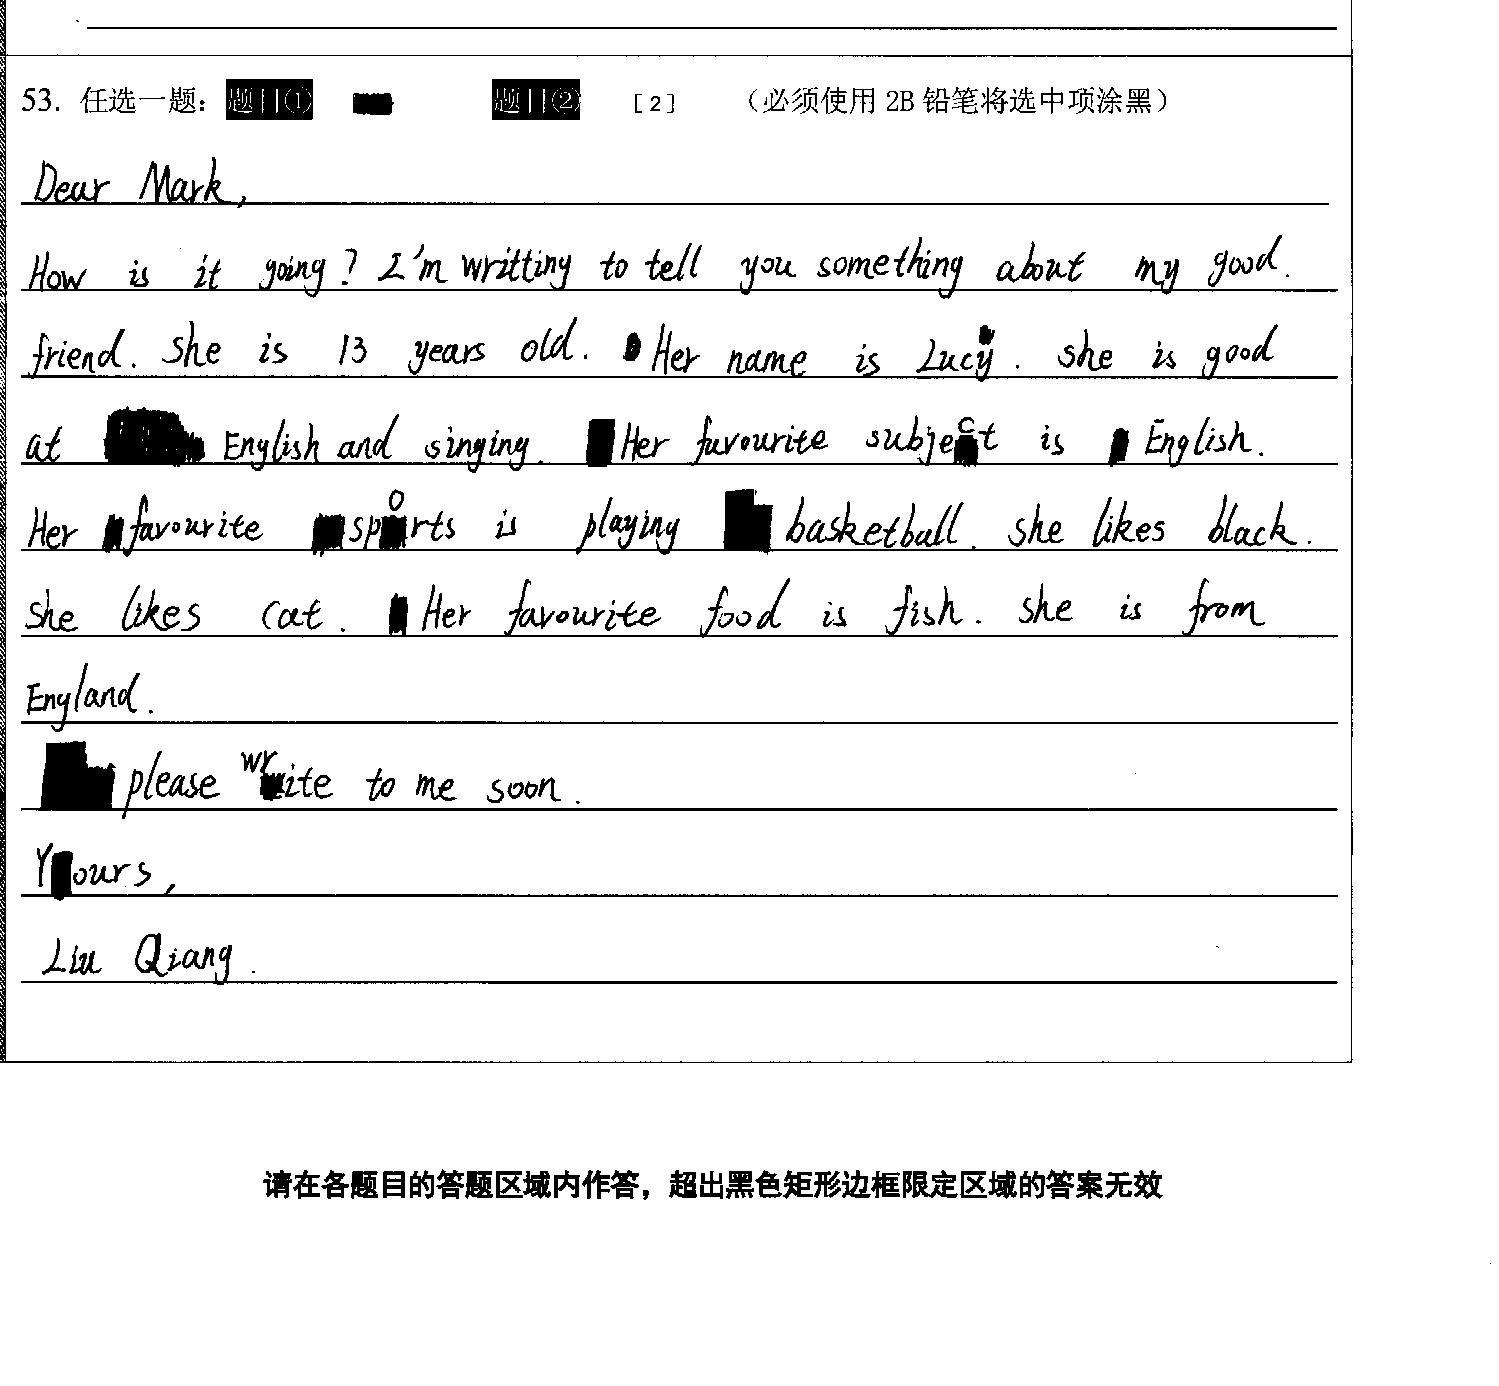 53. 任选一题： 题目① 题目② [2] （必须使用 2B 铅笔将选中项涂黑）
Dear Mark,
How is it going? I'm writting to tell you something about my good.
friend. She is 13 years old. Her name is Lucy. she is good
at English and singing. Her favourite subject is English.
Her favourite sports is playing basketball. she likes black.
She likes cat. Her favourite food is fish. she is from
England.
please write to me soon.
Yours,
Liu Qiang.
请在各题目的答题区域内作答，超出黑色矩形边框限定区域的答案无效